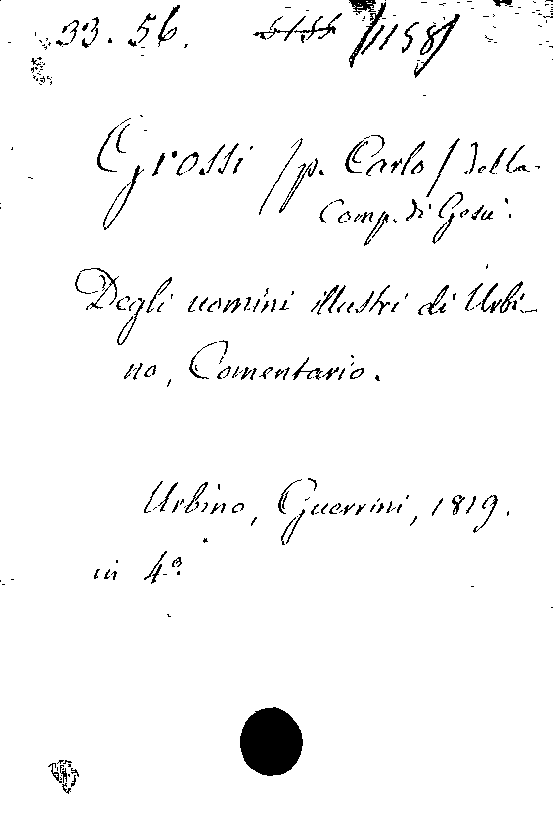 33. 56. /1158/
Grossi /p. Carlo/ della
Comp. di Gesù.
Degli uomini illustri di Urbi-
no, Comentario.
Urbino, Guerrini, 1819.
in 4º